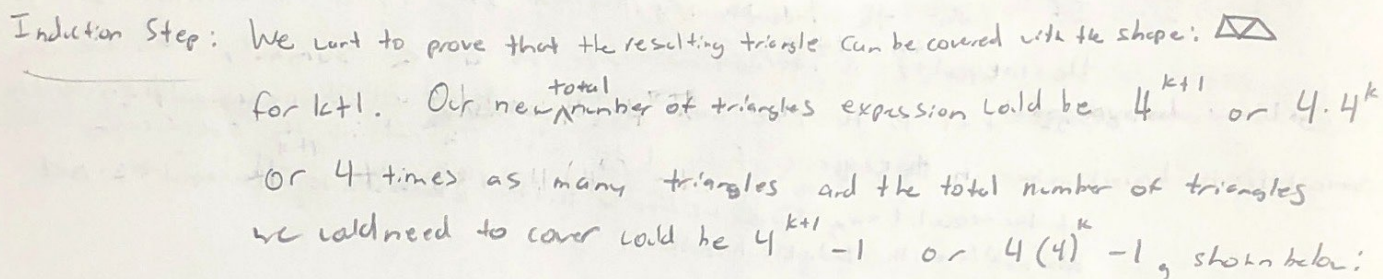 Induction Step: We want to prove that the resulting triangle can be covered with the shape:
for k+1. Our new total number of triangles expression would be 4^{k+1} or 4·4^k
or 4 times as many triangles and the total number of triangles
we would need to cover would be 4^{k+1} - 1 or 4(4)^k - 1, shown below: